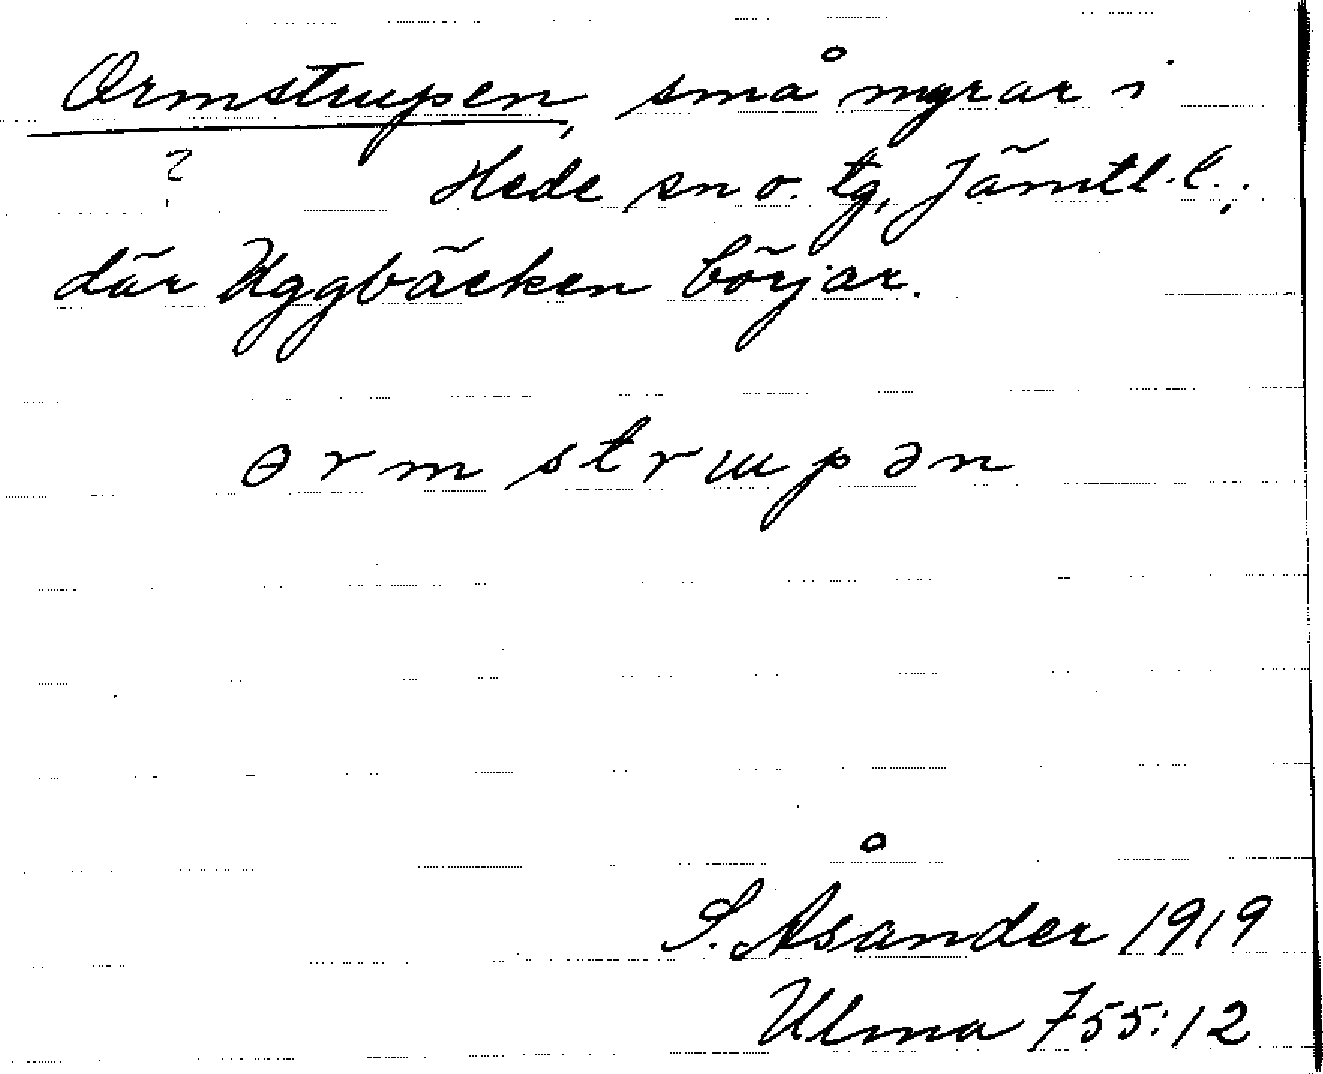 Ormstrupen, små myrar i
?
Hede sn o. tg, Jämtl. l.;
där Uggbäcken börjar.
ɵrmstrɯpən
S. Åsander 1919
Ulma 755:12